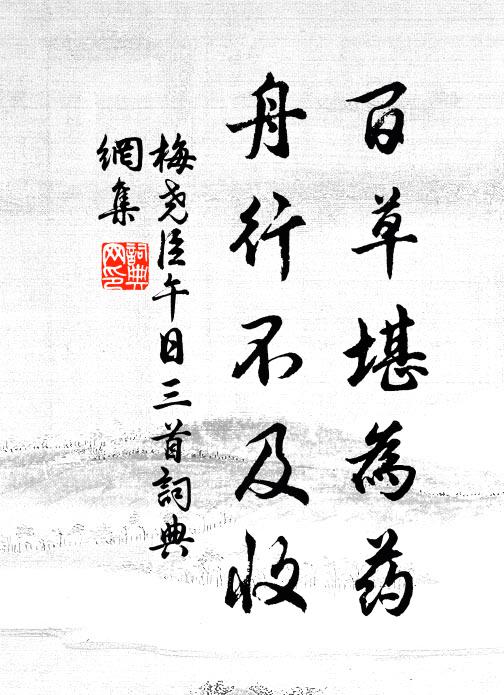 百草堪為药
舟行不及收
梅尧臣午日三首詞典
網集
詞典网印